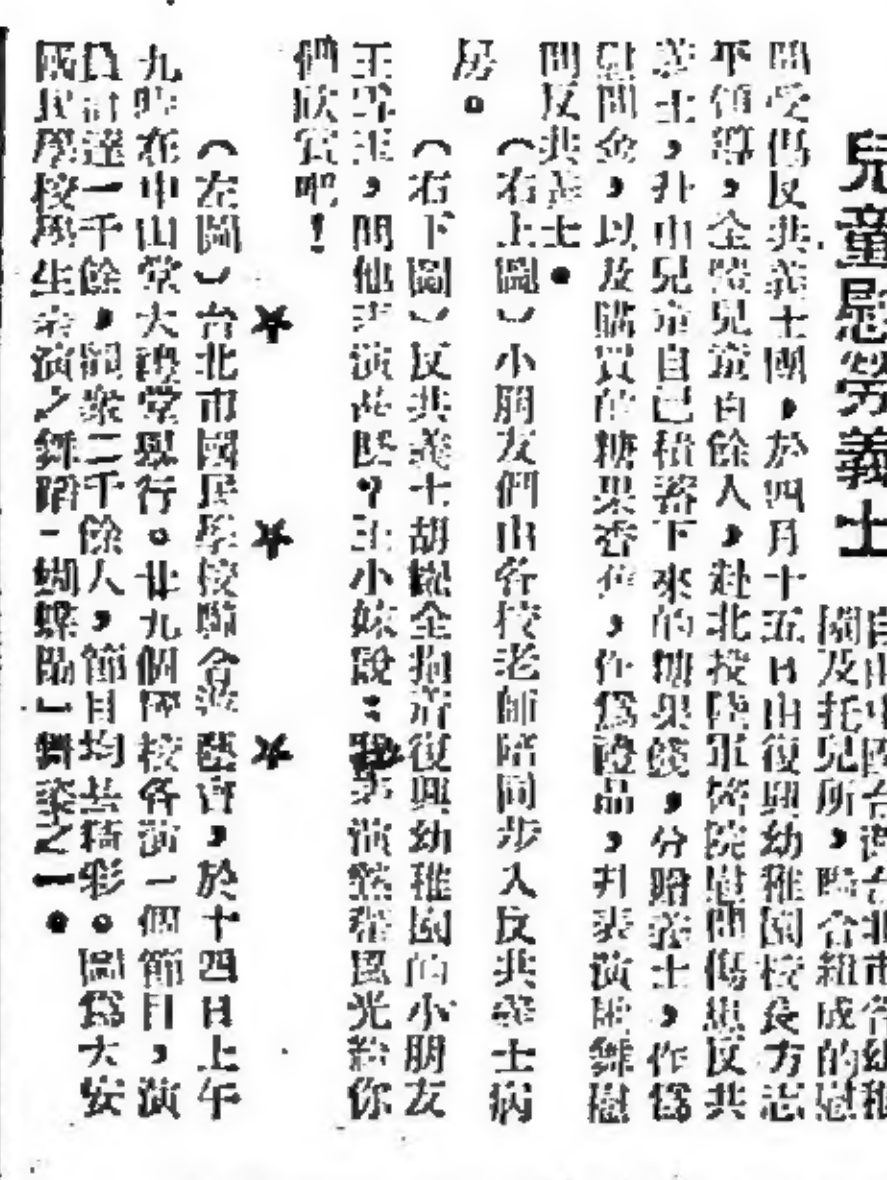 兒童慰勞義士
自由中國台灣台北市各幼稚
園及托兒所，聯合組成的慰
問受傷反共義士團，於四月十五日由復興幼稚園校長方志
平領導，全體兒童百餘人，赴北投陸軍醫院慰問傷患反共
義士，並由兒童自己積蓄下來的糖果錢，分贈義士，作為
慰問金，以及購買的糖果香煙，作為禮品，並表演歌舞慰
問反共義士。
（右上圖）小朋友們由各校老師陪同步入反共義士病
房。
（右下圖）反共義士胡　全抱着復興幼稚園的小朋友
王　王，問他表演甚麼？王小妹說：我表演　　風光給你
們欣賞吧！
（左圖）台北市國民學校聯合遊藝會，於十四日上午
九時在中山堂大禮堂舉行。廿九個國校各演一個節目，演
員計達一千餘，觀衆二千餘人，節目均甚精彩。圖為大安
國民學校學生表演之舞蹈「蝴蝶　」舞姿之一。